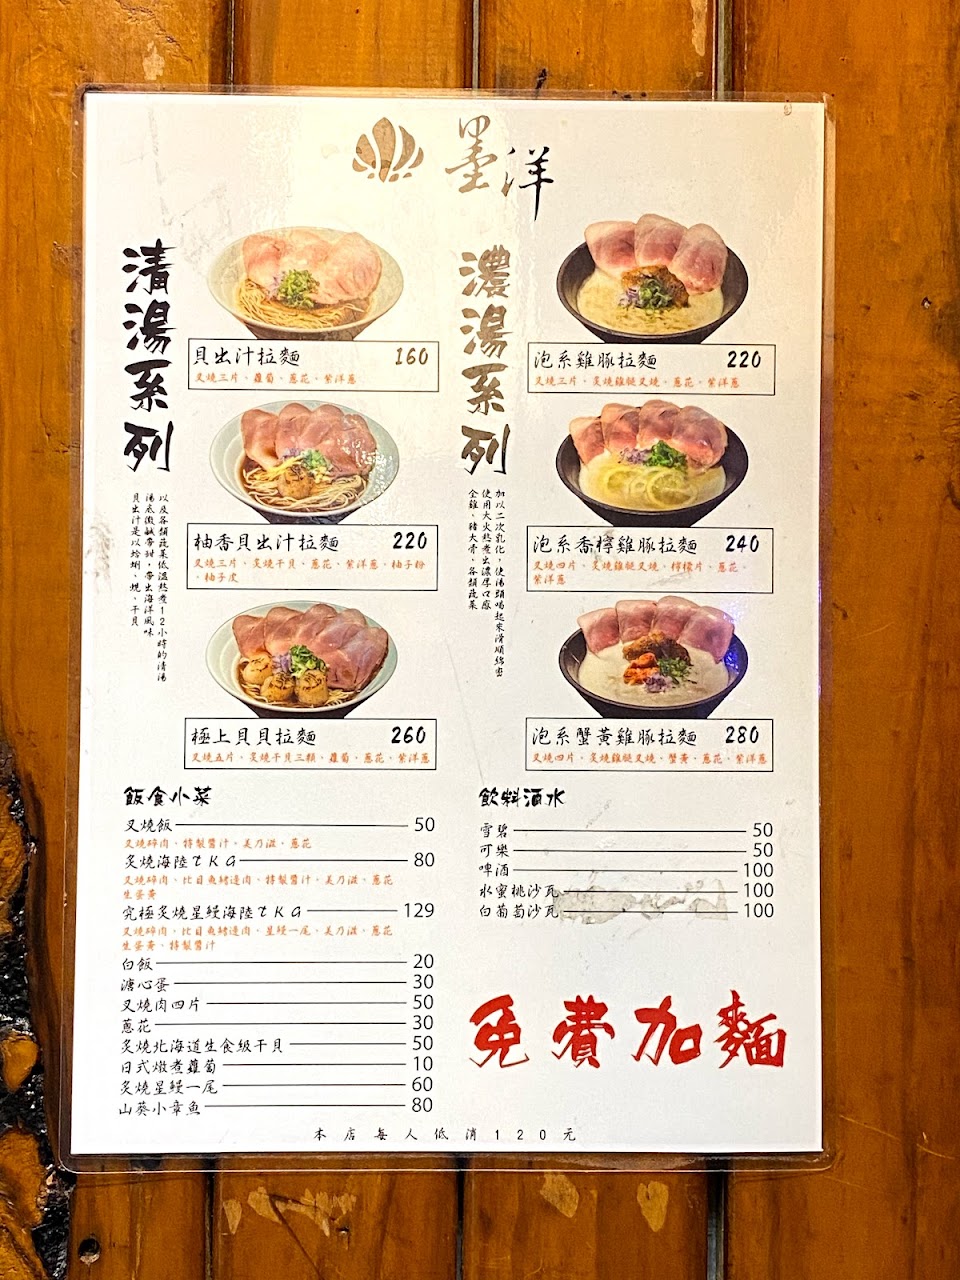 墨洋
清湯系列
貝出汁是以蛤蜊、蜆、干貝
湯底微鹹帶甜，帶出海洋風味
以及各類蔬菜低溫熬煮12小時的清湯
貝出汁拉麵 160
叉燒三片、蘿蔔、蔥花、紫洋蔥
柚香貝出汁拉麵 220
叉燒三片、炙燒干貝、蔥花、紫洋蔥、柚子粉
、柚子皮
極上貝貝拉麵 260
叉燒五片、炙燒干貝三顆、蘿蔔、蔥花、紫洋蔥
濃湯系列
全雞、豬大骨、各類蔬菜
使用大火熬煮出濃厚口感
加以二次乳化，使湯頭喝起來滑順綿密
泡系雞豚拉麵 220
叉燒三片、炙燒雞腿叉燒、蔥花、紫洋蔥
泡系香檸雞豚拉麵 240
叉燒四片、炙燒雞腿叉燒、檸檬片、蔥花、
紫洋蔥
泡系蟹黃雞豚拉麵 280
叉燒四片、炙燒雞腿叉燒、蟹黃、蔥花、紫洋蔥
飯食小菜
叉燒飯 50
叉燒碎肉、特製醬汁、美乃滋、蔥花
炙燒海陸TKG 80
叉燒碎肉、比目魚鰭邊肉、特製醬汁、美乃滋、蔥花
生蛋黃
究極炙燒星鰻海陸TKG 129
叉燒碎肉、比目魚鰭邊肉、星鰻一尾、美乃滋、蔥花
生蛋黃、特製醬汁
白飯 20
溏心蛋 30
叉燒肉四片 50
蔥花 30
炙燒北海道生食級干貝 50
日式燉煮蘿蔔 10
炙燒星鰻一尾 60
山葵小章魚 80
飲料酒水
雪碧 50
可樂 50
啤酒 100
水蜜桃沙瓦 100
白葡萄沙瓦 100
免費加麵
本店每人低消120元